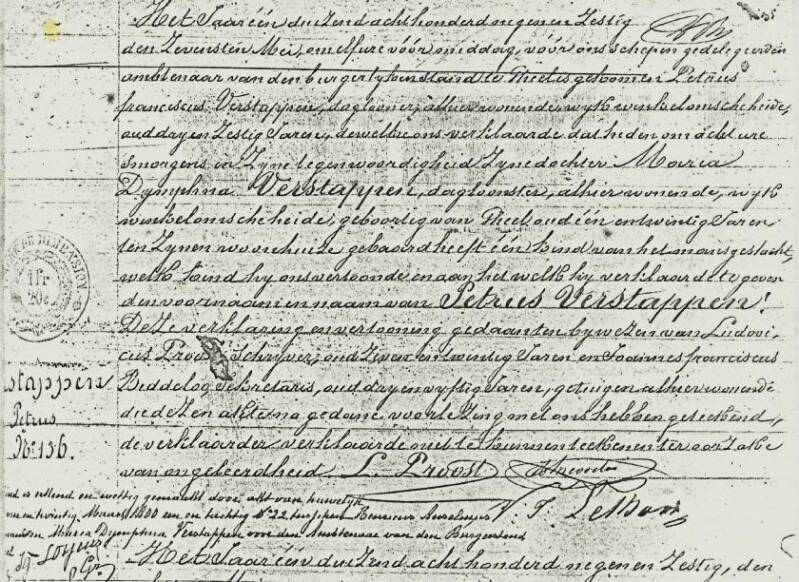 Het Jaar één duizend acht honderd negen en Zestig
den Zevensten Mei, om elf ure vóór middag, vóór ons schepen gedelegeerden
ambtenaar van den burgerlyken stand te Gheel is gekomen Petrus
franciscus Verstappen, daglooner, alhier wonende wyk winkelomscheheide,
oud dry en Zestig Jaren, dewelke ons verklaarde dat heden om acht ure
smorgens in Zyne tegenwoordigheid Zyne dochter Maria
Dymphna Verstappen, dagloonster, alhier wonende, wyk
winkelomscheheide, geboortig van Gheel oud één en twintig Jaren
ten Zynen woonhuize gebaard heeft één kind van het mansgeslacht,
welk kind hy ons vertoonde en aan het welk hy verklaarde te geven
den voornaam en naam van Petrus Verstappen!
Deze verklaring en vertooning gedaan ten bywezen van Ludovi
cus Proost Schryver, oud Zeven en twintig Jaren en Joannes franciscus
Beddelog Sekretaris, oud dry en vyftig Jaren, getuigen alhier wonende
die dezen akt erna gedane voorlezing met ons hebben geteekend,
de verklaarder verklaarde niet te kunnen teekenen ter oorzake
van ongeleerdheid L. Proost
1 fr
20c
stappen
Petrus
N° 136.
nd is erkend en wettig gemaakt door akt van huwelyk
en twintig Maart 1800 een en tachtig N° 22 tusschen
Maria Dymphna Verstappen voor den Ambtenaar van den Burgerstand
Het Jaar één duizend acht honderd negen en Zestig, den